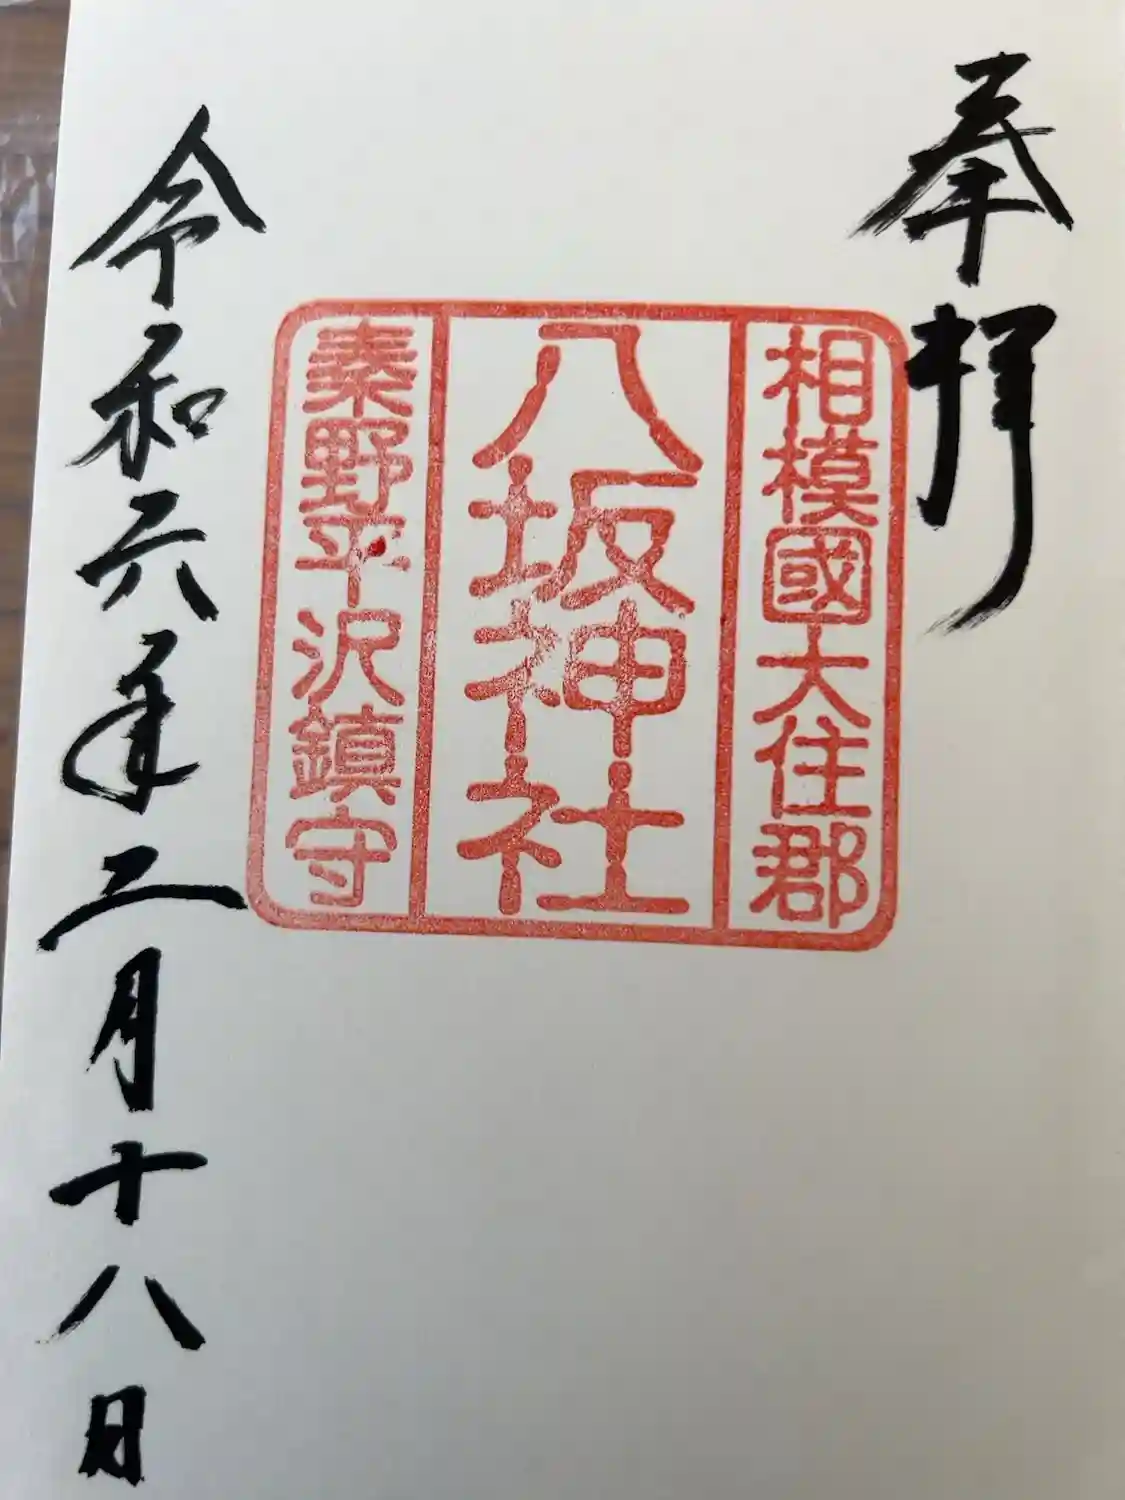 奉拝
相模國大住郡
八坂神社
秦野平沢鎮守
令和六年三月十八日